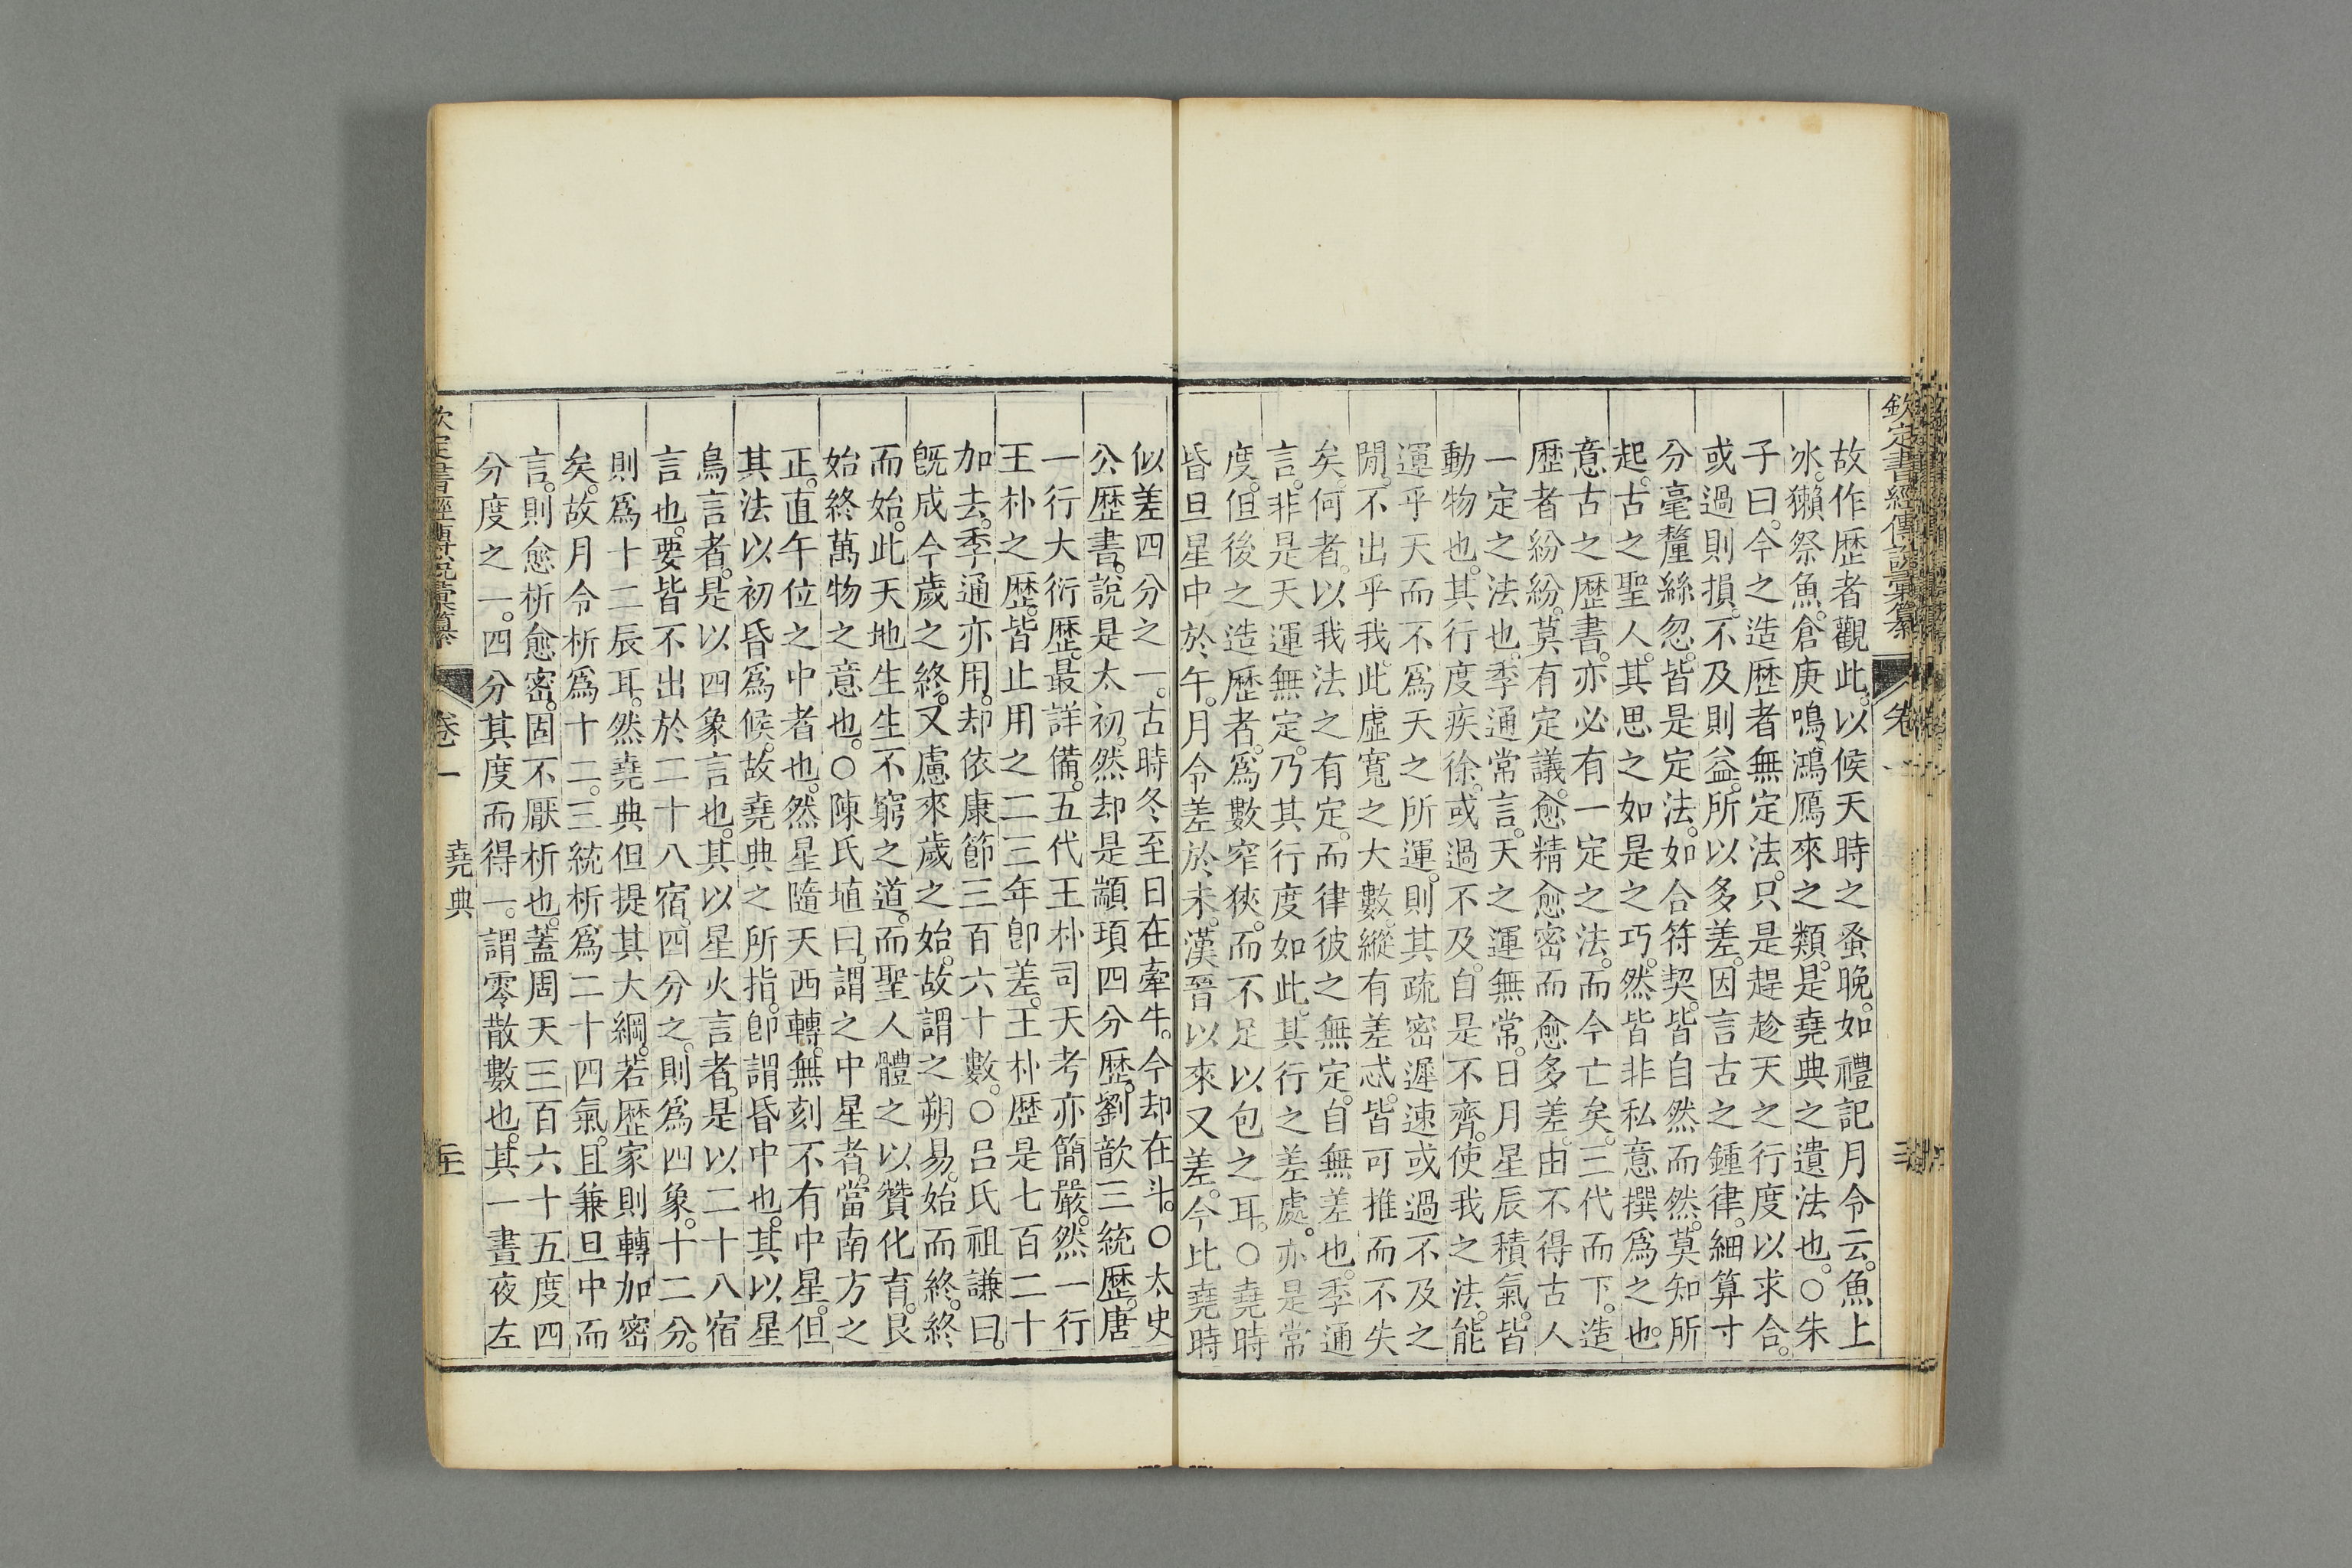 欽定書經傳說彙纂
卷一
故作歷者觀此以候天時之蚤晚如禮記月令云魚上
冰獺祭魚倉庚鳴鴻鴈來之類是堯典之遺法也○朱
子曰今之造歷者無定法只是趕趁天之行度以求合
或過則損不及則益所以多差因言古之鍾律細算寸
分毫釐絲忽皆是定法如合符契皆自然而然莫知所
起古之聖人其思之如是之巧然皆非私意撰爲之也
意古之歷書亦必有一定之法而今亡矣三代而下造
歷者紛紛莫有定議愈精愈密而愈多差由不得古人
一定之法也季通常言天之運無常日月星辰積氣皆
動物也其行度疾徐或過不及自是不齊使我之法能
運乎天而不爲天之所運則其疏密遲速或過不及之
閒不出乎我此虛寬之大數縱有差忒皆可推而不失
矣何者以我法之有定而律彼之無定自無差也季通
言非是天運無定乃其行度如此其行之差處亦是常
度但後之造歷者爲數窄狹而不足以包之耳○堯時
昏旦星中於午月令差於未漢晉以來又差今比堯時
似差四分之一古時冬至日在牽牛今却在斗○太史
公歷書說是太初然却是顓頊四分歷劉歆三統歷唐
一行大衍歷最詳備五代王朴司天考亦簡嚴然一行
王朴之歷皆止用之二三年卽差王朴歷是七百二十
加去季通亦用却依康節三百六十數○呂氏祖謙曰
旣成今歲之終又慮來歲之始故謂之朔易始而終終
而始此天地生生不窮之道而聖人體之以贊化育艮
始終萬物之意也○陳氏埴曰謂之中星者當南方之
正直午位之中者也然星隨天西轉無刻不有中星但
其法以初昏爲候故堯典之所指卽謂昏中也其以星
鳥言者是以四象言也其以星火言者是以二十八宿
言也要皆不出於二十八宿四分之則爲四象十二分
則爲十二辰耳然堯典但提其大綱若歷家則轉加密
矣故月令析爲十二三統析爲二十四氣且兼旦中而
言則愈析愈密固不厭析也蓋周天三百六十五度四
分度之一四分其度而得一謂零散數也其一晝夜左
欽定書經傳說彙纂
卷一
堯典